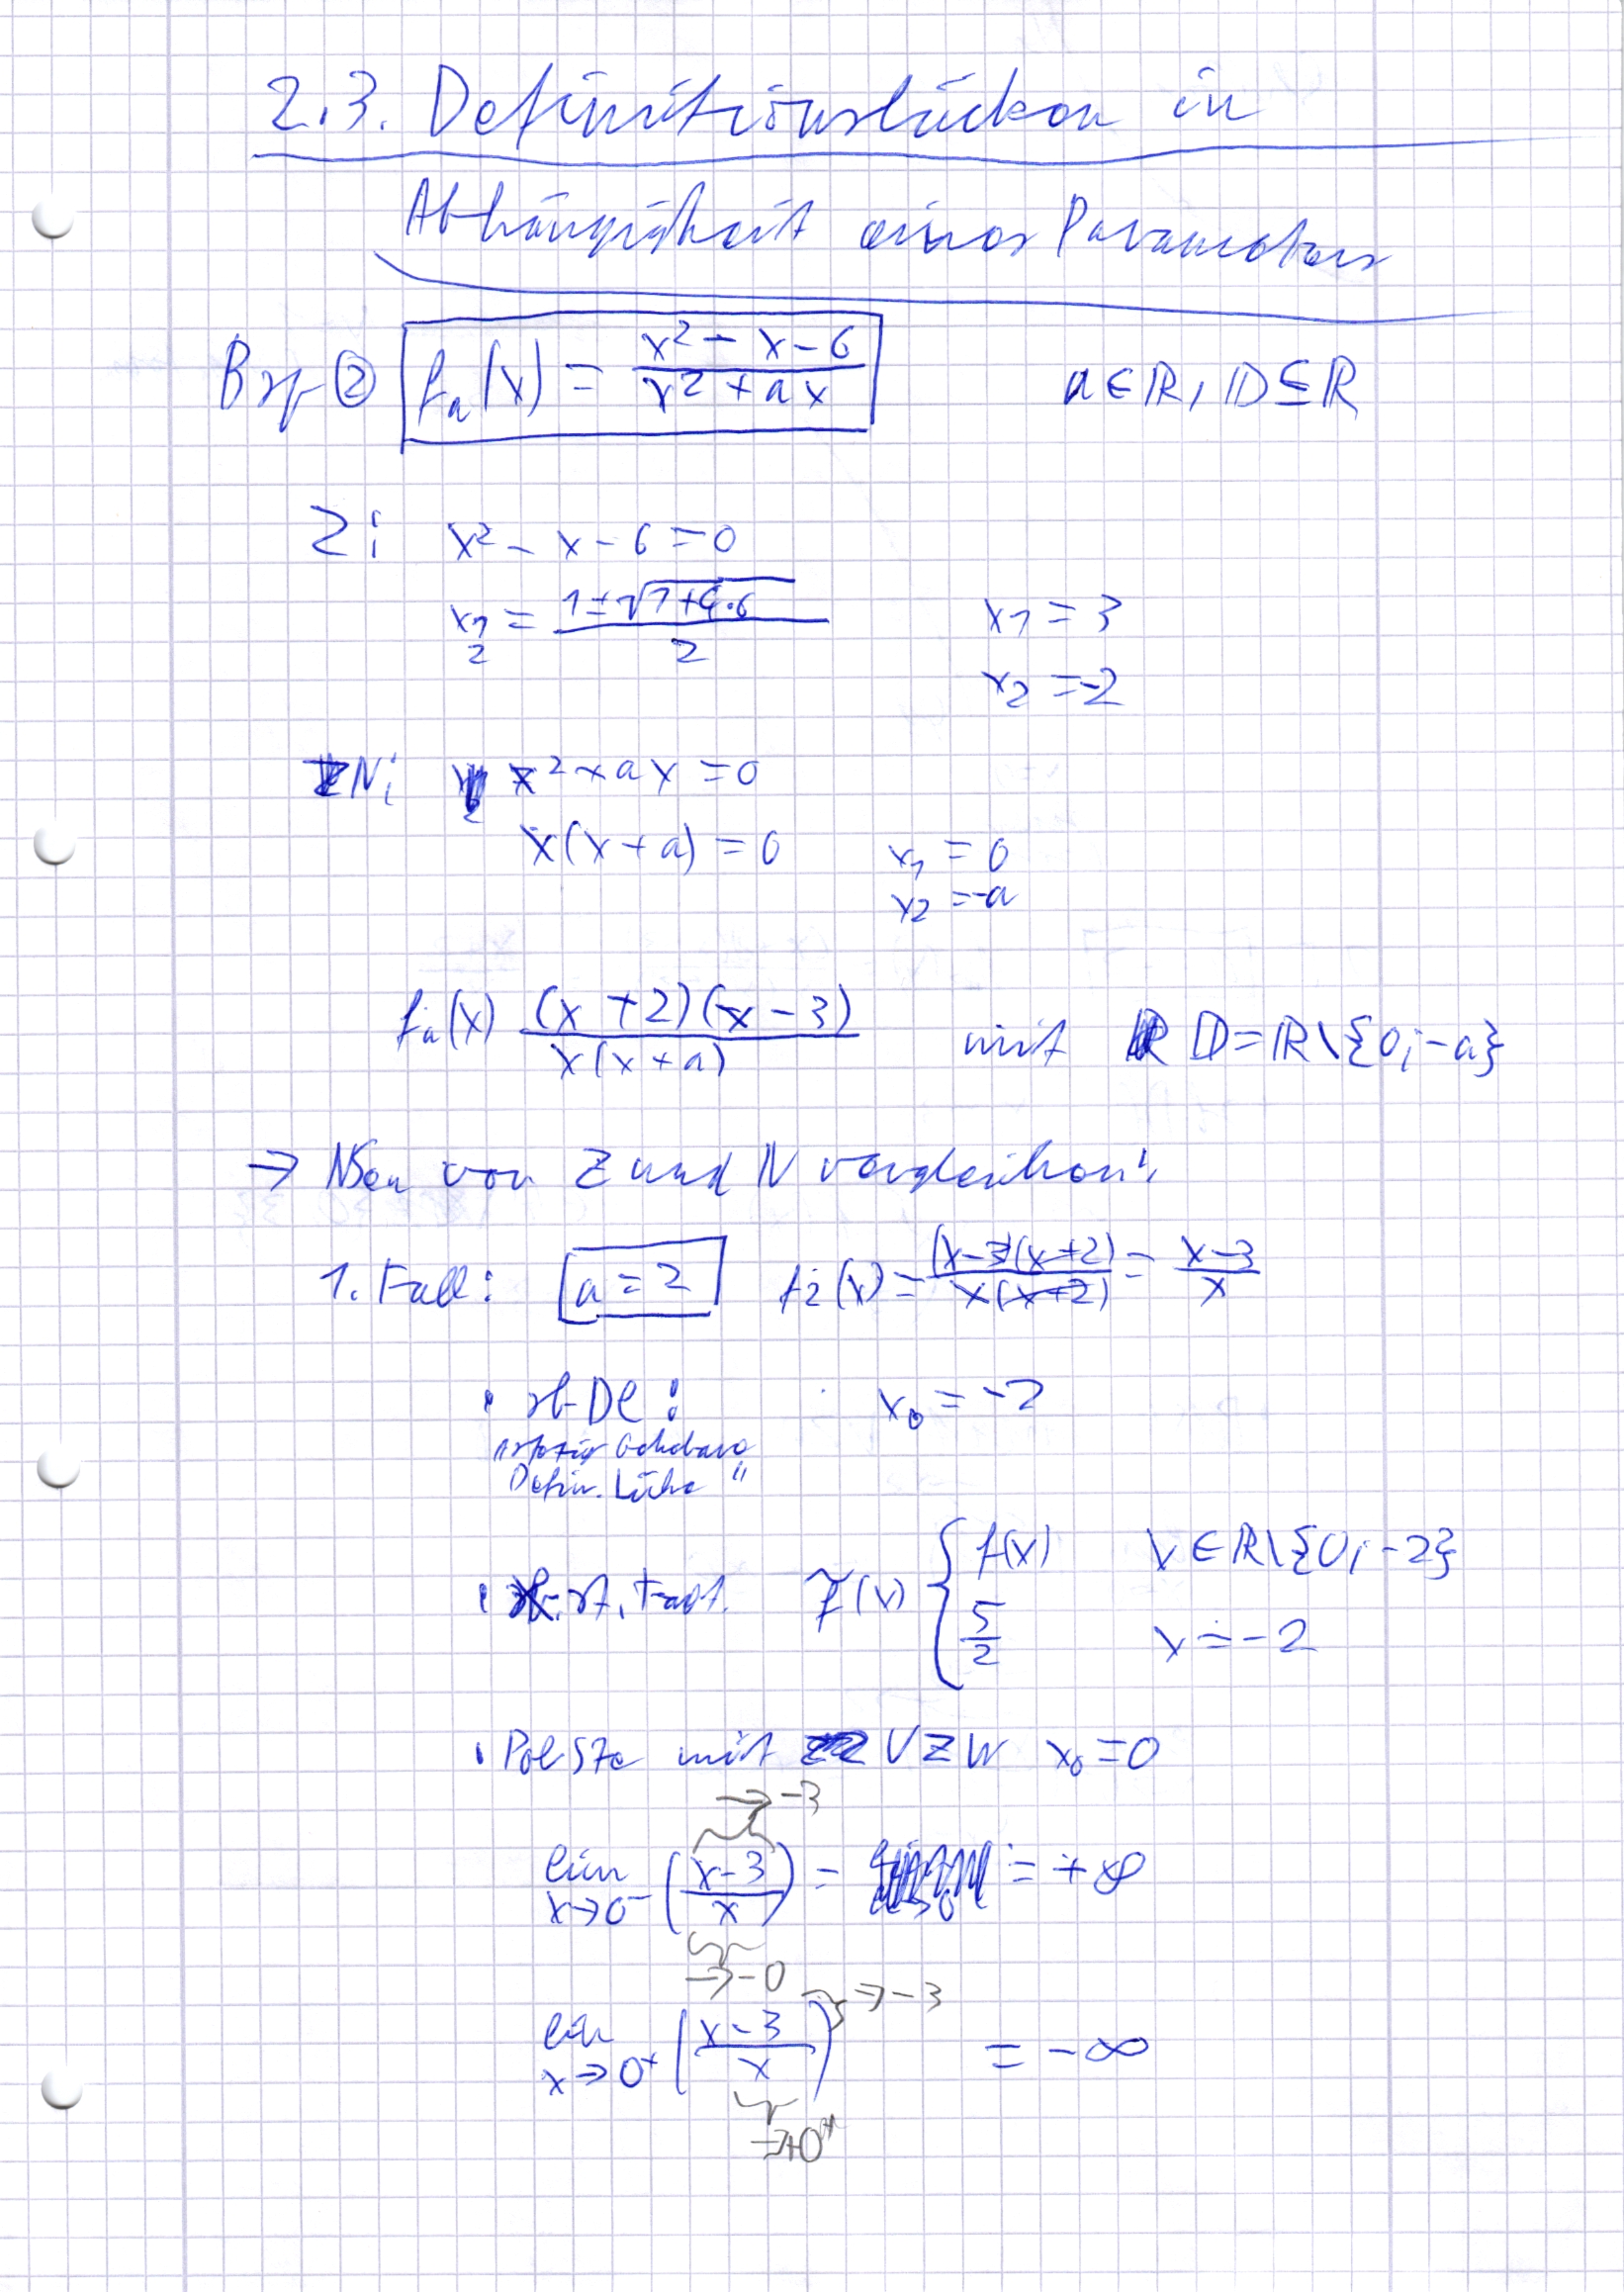 2.3. Definitionslücken in
Abhängigkeit eines Parameters
Bsp ② fₐ(x) = (x² - x - 6)/(x² + ax) a ∈ ℝ, 𝔻 ⊆ ℝ
Z: x² - x - 6 = 0
x₁/₂ = (1 ± √(1+4·6))/2 x1 = 3
x₂ = -2
N: x² + ax = 0
x(x + a) = 0 x₁ = 0
x₂ = -a
fₐ(x) ((x + 2)(x - 3))/(x(x + a)) mit 𝔻 = ℝ\{0; -a}
→ NSen von Z und N vergleichen:
1. Fall: a = 2 f₂(x) = ((x-3)(x+2))/(x(x+2)) = (x-3)/x
· sb-Dl: x₀ = -2
"stetig behebbare
Defin. Lücke"
· st. Fort. f̃(x) { f(x) x ∈ ℝ\{0; -2}
5/2 x = -2
· PolSte mit VZW x₀ = 0
→ -3
lim x→0⁻ ((x-3)/x) = = +∞
→ -0
→ -3
lim x→0⁺ ((x-3)/x) = -∞
→ +0